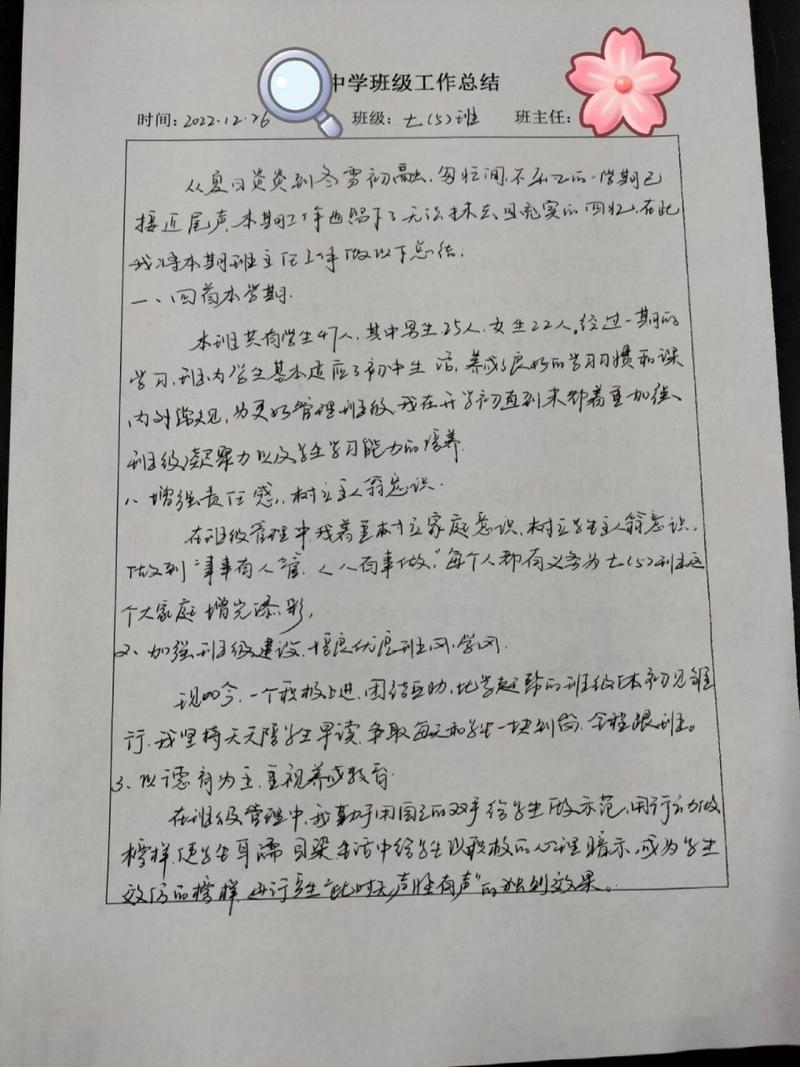 中学班级工作总结
时间:2022.12.26 班级:七(5)班 班主任:
从夏日炎炎到冬雪初融,匆忙间,不平凡的一学期已
接近尾声,本期工作也留下了无法抹去且充实的回忆,在此
我将本期班主任工作做以下总结:
一、回首本学期.
本班共有学生47人,其中男生25人,女生22人。经过一期的
学习,班内学生基本适应了初中生活,养成了良好的学习习惯和课
内对常规,为更好管理班级,我在开学初直到末都着重加强、
班级凝聚力以及学生学习能力的培养.
1、增强责任感,树立主人翁意识.
在班级管理中,我着重树立家庭意识,树立学生主人翁意识,
做到“事事有人管,人人有事做,”每个人都有义务为七(5)班这
个大家庭增光添彩,
2、加强班级建设,培良优良班风,学风.
现如今,一个积极上进,团结互助,比学赶帮的班级已初见雏
行,我坚持天天陪学生早读,争取每天和学生一块到岗,全程跟班。
3、以德育为主,重视养成教育.
在班级管理中,我勤于用自己的双手给学生做示范,用行动做
榜样,使学生耳濡目染,生活中给学生以积极的心理暗示,成为学生
效仿的榜样,进行产生“此时无声胜有声”的独到效果。